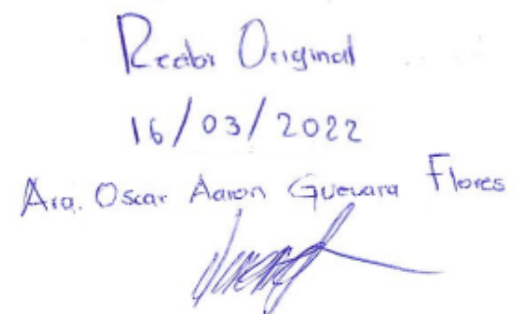 Recibi Original
16/03/2022
Arq. Oscar Aaron Guevara Flores